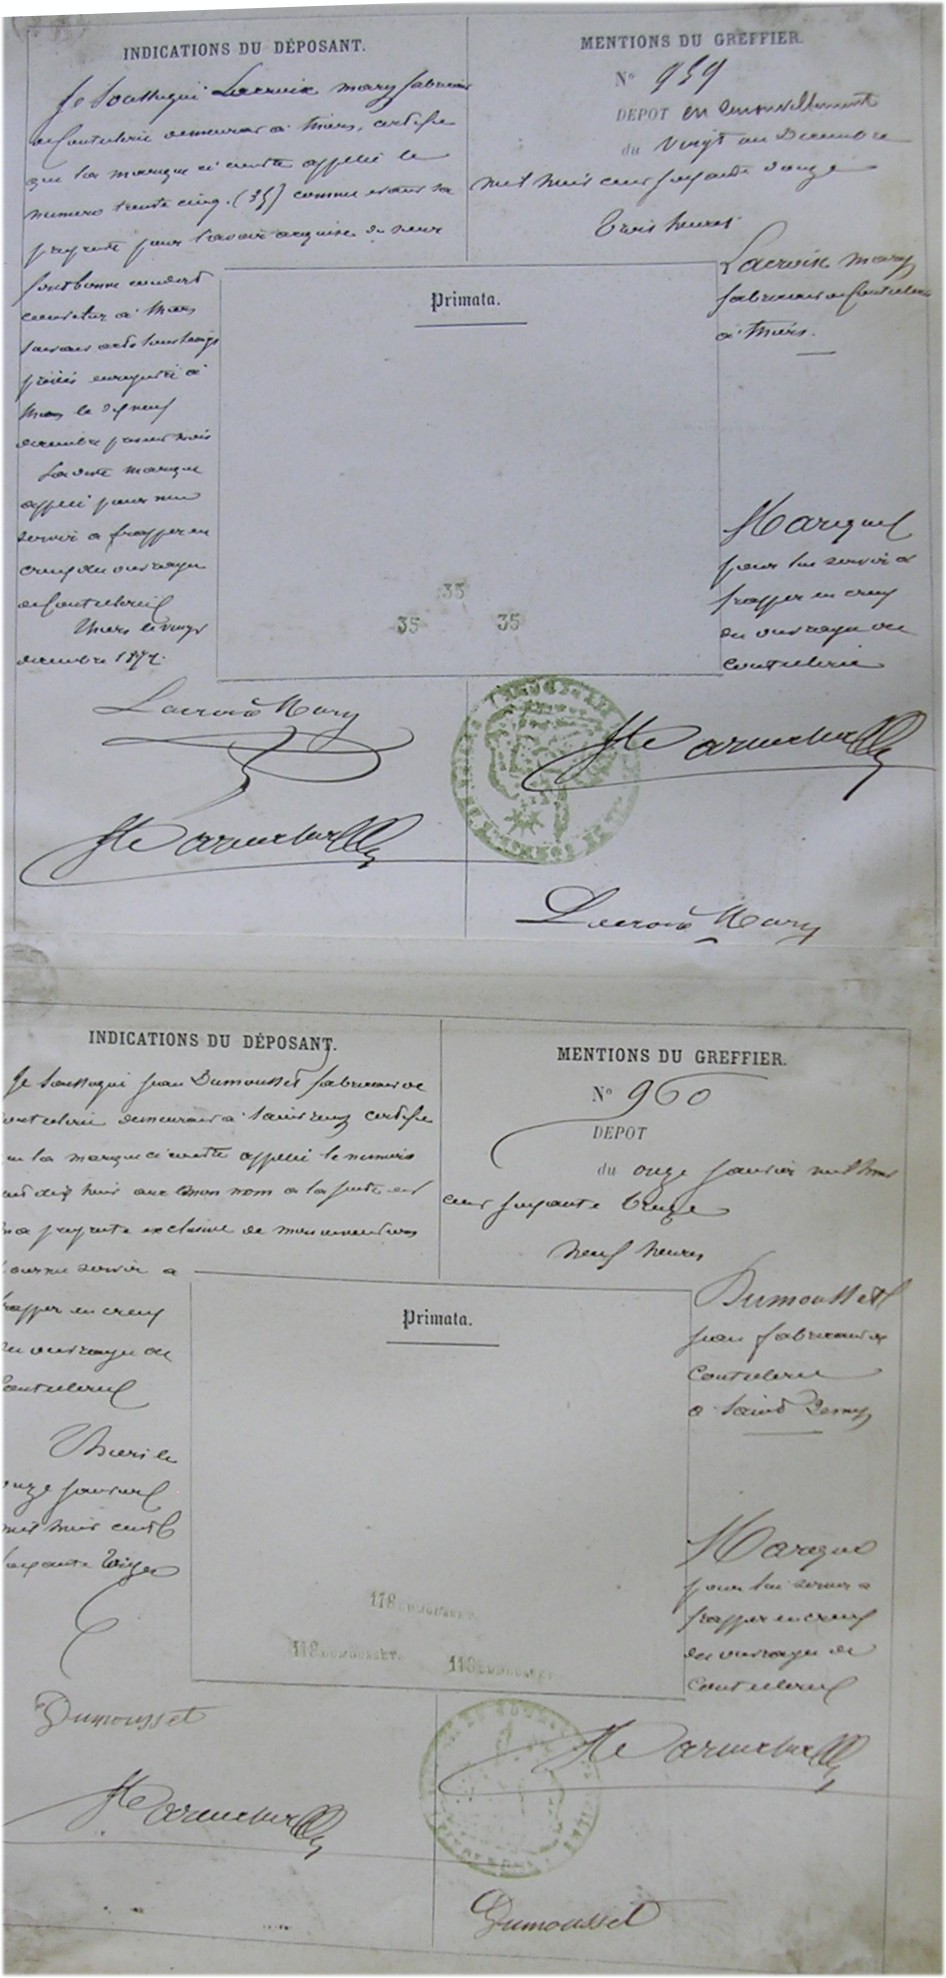 INDICATIONS DU DÉPOSANT.
Je soussigné Lacroix Mary fabricant
de Coutellerie demeurant à Thiers, certifie
que la marque ci contre appelée le
numero trente cinq. (35) comme étant sa
propriété pour l'avoir acquise du sieur
à Thiers
enregistré à
Thiers le dix neuf
décembre présent mois
La dite marque
appelée pour me
servir à frapper en
creux des ouvrages
de Coutellerie
Thiers le vingt
décembre 1872.
Lacroix Mary
MENTIONS DU GREFFIER.
N° 959
DEPOT en renouvellement
du vingt un Décembre
mil huit cent soixante douze
trois heures
Lacroix Mary
fabricant de Coutellerie
à Thiers.
Primata.
35
35 35
Marque
pour lui servir à
frapper en creux
des ouvrages de
coutellerie
Lacroix Mary
INDICATIONS DU DÉPOSANT.
Je soussigné Jean Dumousset fabricant de
demeurant à Saint Remy certifie
la marque ci contre appelée le numéro
dix huit avec mon nom à la suite est
propriété exclusive de mon invention
pour me servir à
frapper en creux
des ouvrages de
Coutellerie
Thiers le
onze Janvier
mil huit cent
soixante treize
Dumousset
MENTIONS DU GREFFIER.
N° 960
DEPOT
du onze Janvier mil huit
cent soixante treize
neuf heures
Dumousset
Jean fabricant de
Coutellerie
à Saint Remy
Primata.
118 DUMOUSSET
118 DUMOUSSET 118 DUMOUSSET
Marque
pour lui servir à
frapper en creux
des ouvrages de
Coutellerie
Dumousset